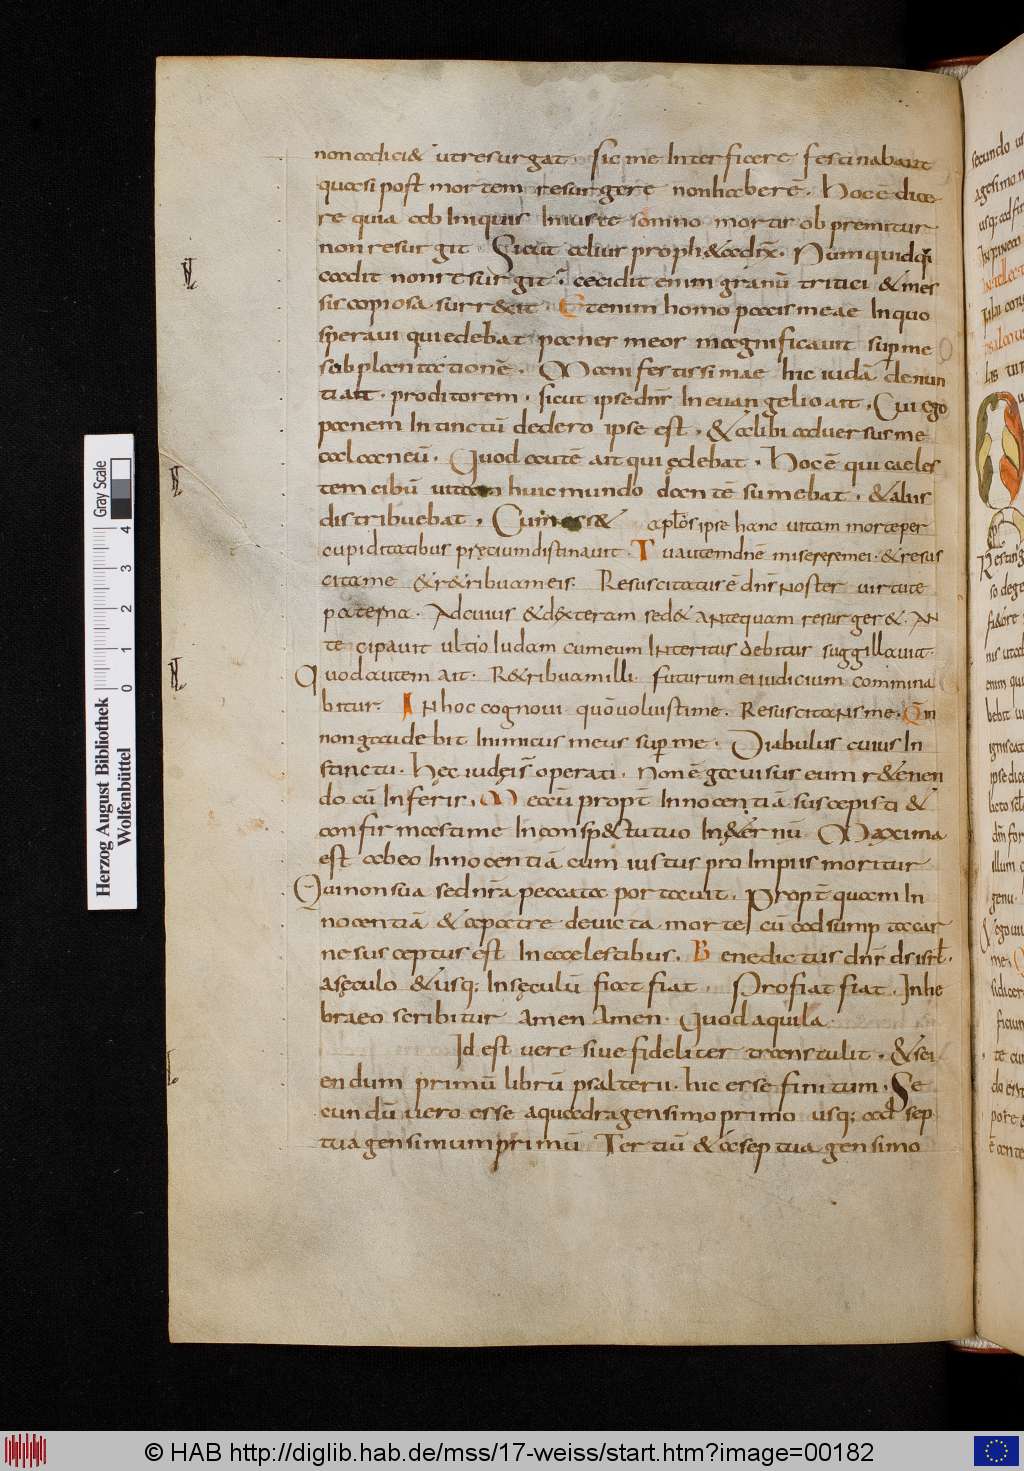 non adiciet ut resurgat. Sic me Interficere festinabant
quasi post mortem resurgere non habere. Hoc ē dice
re quia ab Iniquis Iniuste somno mortis obpremitur
non resurgit. Sicut alius proph&a dix̄. Numquid qui
cadit non resurgit. cecidit enim granū tritici & mes
sis copiosa surrexit. Etenim homo pacis meae In quo
speravi qui edebat panes meos magnificavit sup me
subplantationē. Manifestissimae hic iudā denun
tiat. proditorem. sicut ipse dn̄s In evangelio ait. Cui ego
panem Intinctū dedero ipse est. & alibi adversus me
calcaneū. Quod autē ait qui ędebat. Hoc ē qui caeles
tem cibū vitam huic mundo dantē sumebat. & aliis
distribuebat. Cum ess& apl̄os ipse hanc vitam morte per
cupiditatibus prętium distinavit. Tu autem dn̄e miserere mei. & resus
cita me & r&ribuam eis. Resuscitatus ē dn̄s noster virtute
paterna. Ad cuius & dexteram sed& antequam resurger&. An
tecipavit ultio Iudam cum eum Interitus debitus suggillavit.
Quod autem ait. R&ribuam illi. futurum ei iudicium commina
bitur. In hoc cognovi quō voluisti me. Resuscitans me. Qm̄
non gaudebit Inimicus meus sup me. Diabulus cuius In
stinctu. Hec iudęis operati. Non ē gavisus eum r&enen
do cū Inferis. Me autē propt̄ Innocentiā suscepisti &
confirmasti me In conspectu tuo In &ernū Maxima
est ab eo Innocentiā cum iustus pro Impiis moritur
Qui non sua sed nr̄a peccata portavit. Propt̄ quam In
nocentiā & a patre devicta morte, cū adsumpta car
ne susceptus est In caelestibus. Benedictus dn̄s ds̄ isrl̄.
a sęculo & usq; In sęculū fiat fiat. Pro fiat fiat. In he
braeo scribitur Amen Amen. Quod aquila
Id est vere sive fideliter transtulit. & sci
endum primū librū psalterii. hic esse finitum. Se
cundū vero esse a quadragensimo primo usq; ad sep
tuagensimum primū Tertiū & a septuagensimo
Herzog August Bibliothek
Wolfenbüttel
Gray Scale
0 1 2 3 4
© HAB http://diglib.hab.de/mss/17-weiss/start.htm?image=00182